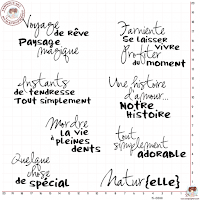 Voyage
de rêve
Paysage
magique
Farniente
Se laisser
vivre
Profiter
du moment
Instants
de tendresse
Tout simplement
Une histoire
d'amour...
Notre
histoire
Mordre
la vie
à pleines
dents
tout
simplement
adorable
Quelque
chose
de spécial
Natur{elle}